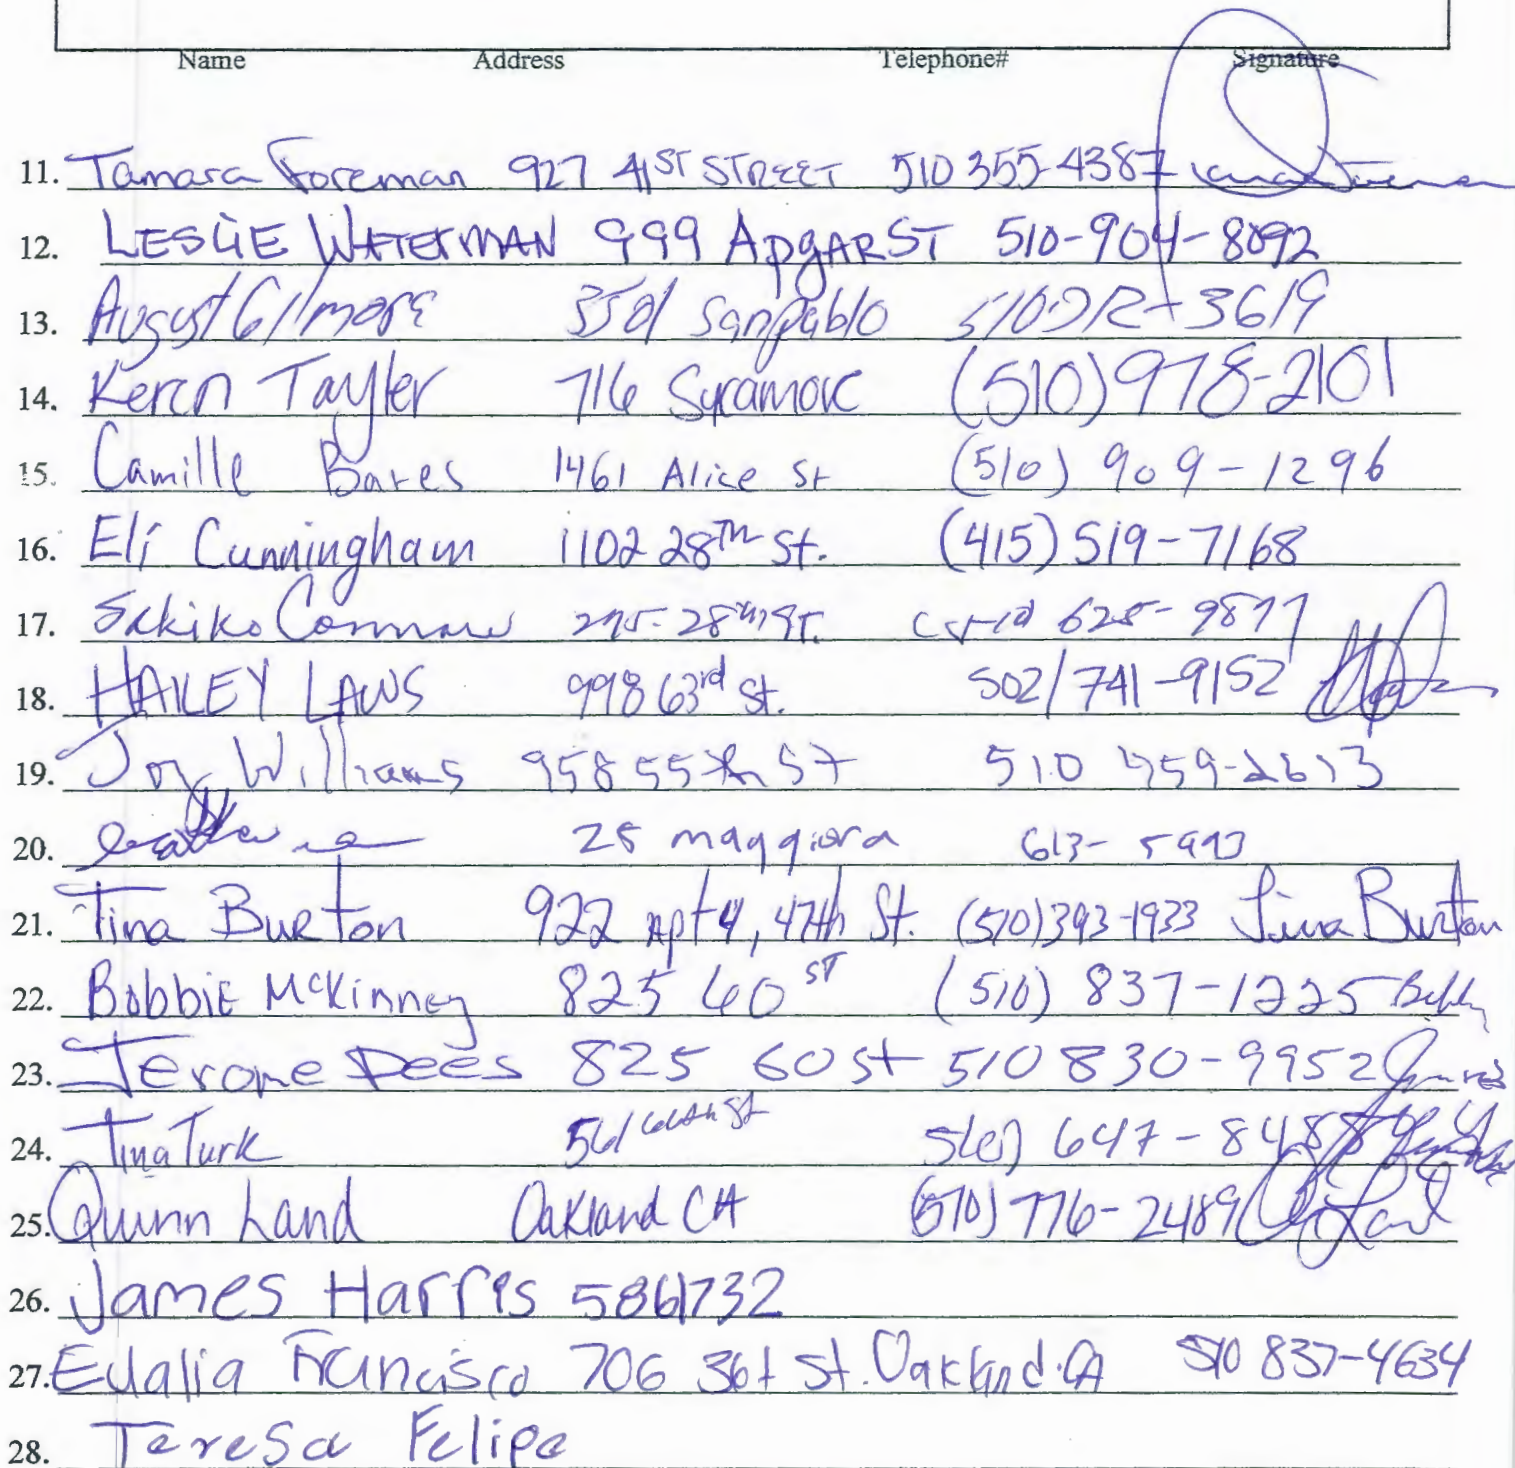 Name Address Telephone# Signature
11. Tamara Foreman 927 41ST STREET 510 355-4387
12. LESLIE WATERMAN 999 ApgAR ST 510-904-8092
13. August Gilmore 3501 Sanpablo 3619
14. Keren Tayler 716 Sycamore (510) 978-2101
15. Camille Bates 1461 Alice St (510) 909-1296
16. Eli Cunningham 1102 28TH St. (415) 519-7168
17. Sakiko 28th St.
18. HAILEY LAWS 998 63rd St. 502/741-9152
19. Joy Williams 958 55th St 510
20. 25 maggiora 613-
21. Tina Burton 922 Apt 4, 47th St. (510) 393-1933 Tina Burton
22. Bobbie McKinney 825 60 ST (510) 837-1225
23. Jerome Dees 825 60 st 510 830-9952
24. Tina Turk 561 66th St 647-8488
25. Quinn Land Oakland CA (510) 776-2489
26. James Harris 5861732
27. Eulalia Francisco 706 36t St. Oakland.CA 510 837-4634
28. Teresa Felipe